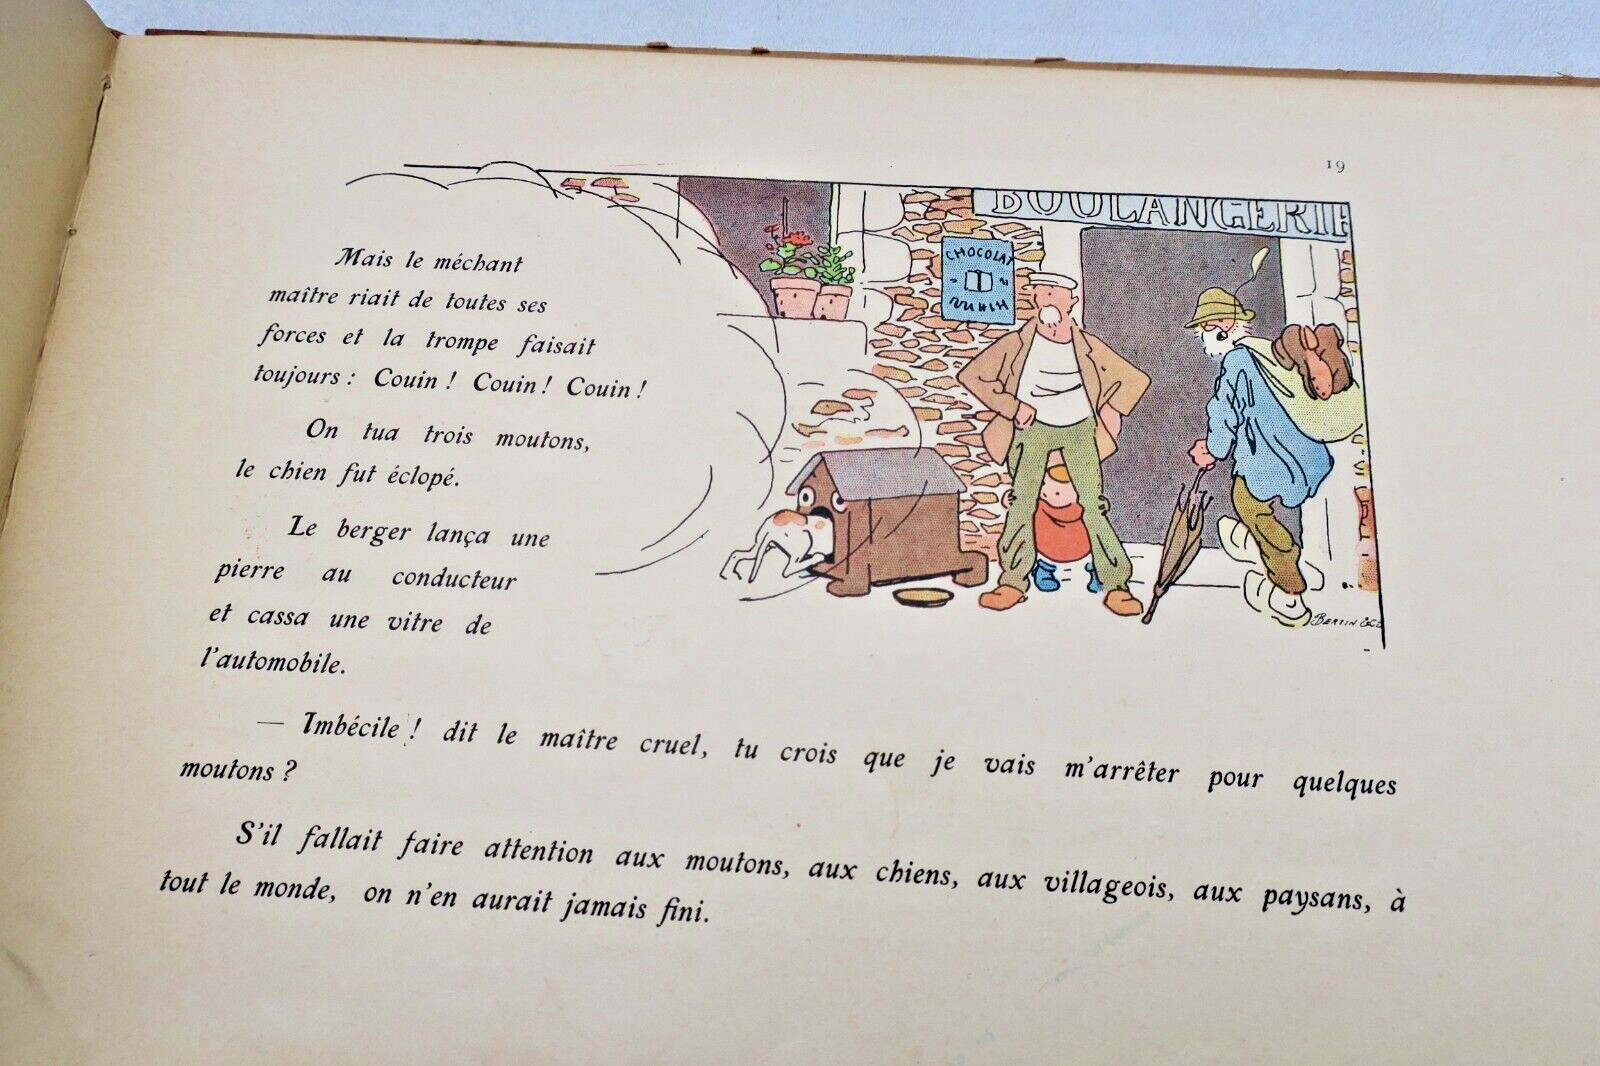 19
Mais le méchant
maître riait de toutes ses
forces et la trompe faisait
toujours : Couin ! Couin ! Couin !
On tua trois moutons,
le chien fut éclopé.
Le berger lança une
pierre au conducteur
et cassa une vitre de
l'automobile.
— Imbécile ! dit le maître cruel, tu crois que je vais m'arrêter pour quelques
moutons ?
S'il fallait faire attention aux moutons, aux chiens, aux villageois, aux paysans, à
tout le monde, on n'en aurait jamais fini.
BOULANGERIE
CHOCOLAT